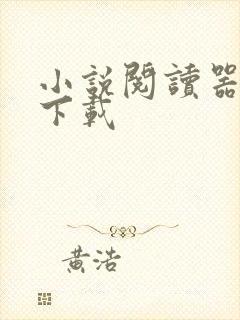 小說閱讀器
下載
黃浩